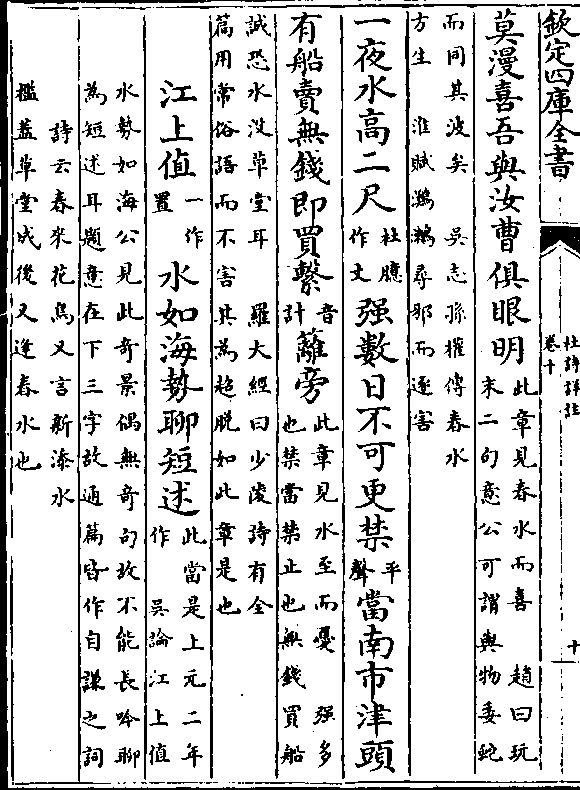 欽定四庫全書
杜詩詳註
卷十
十
莫漫喜吾與汝曹俱眼明
此章見春水而喜 趙曰玩
末二句意公可謂與物委蛇
而同其波矣 吳志孫權傳春水
方生 淮賦鸂鶒尋邪而逐害
一夜水高二尺
杜臆
作丈
强數日不可更禁
平
聲
當南市津頭
有船賣無錢即買繫
音
計
籬旁
此章見水至而憂 强多
也禁當禁止也無錢買船
誠恐水没草堂耳 羅大經曰少陵詩有全
篇用常俗語而不害其為超脱如此章是也
江上值
一作
置
水如海勢聊短述
此當是上元二年
作 吳論江上值
水勢如海公見此奇景偶無奇句故不能長吟聊
為短述耳題意在下三字故通篇皆作自謙之詞
詩云春來花鳥又言新添水
檻蓋草堂成後又逢春水也